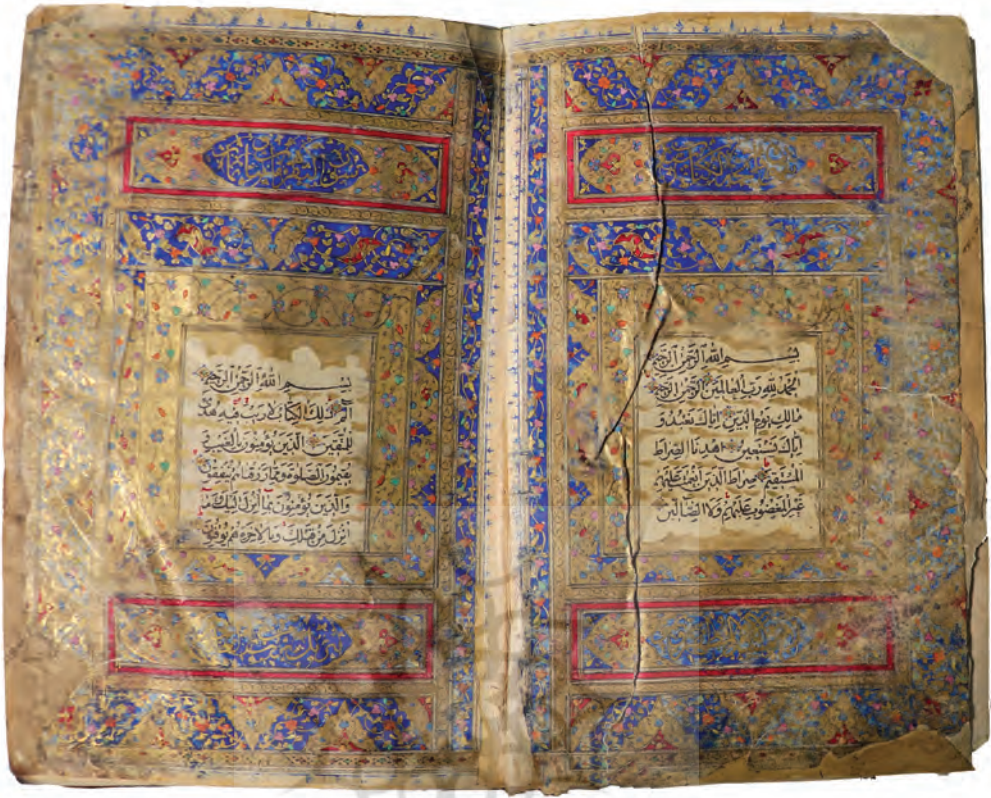 بِسْمِ اللهِ الرَّحْمٰنِ الرَّحِيمِ
اَلْحَمْدُ لِلّٰهِ رَبِّ الْعَالَمِينَ الرَّحْمٰنِ الرَّحِيمِ
مَالِكِ يَوْمِ الدِّينِ اِيَّاكَ نَعْبُدُ وَ
اِيَّاكَ نَسْتَعِينُ اِهْدِنَا الصِّرَاطَ
الْمُسْتَقِيمَ صِرَاطَ الَّذِينَ اَنْعَمْتَ عَلَيْهِمْ
غَيْرِ الْمَغْضُوبِ عَلَيْهِمْ وَلَا الضَّالِّينَ
بِسْمِ اللهِ الرَّحْمٰنِ الرَّحِيمِ
الٓمٓ ذٰلِكَ الْكِتَابُ لَا رَيْبَ فِيهِ هُدًى
لِلْمُتَّقِينَ الَّذِينَ يُؤْمِنُونَ بِالْغَيْبِ وَ
يُقِيمُونَ الصَّلٰوةَ وَمِمَّا رَزَقْنَاهُمْ يُنْفِقُونَ
وَالَّذِينَ يُؤْمِنُونَ بِمَا اُنْزِلَ اِلَيْكَ وَمَا
اُنْزِلَ مِنْ قَبْلِكَ وَبِالْاٰخِرَةِ هُمْ يُوقِنُونَ